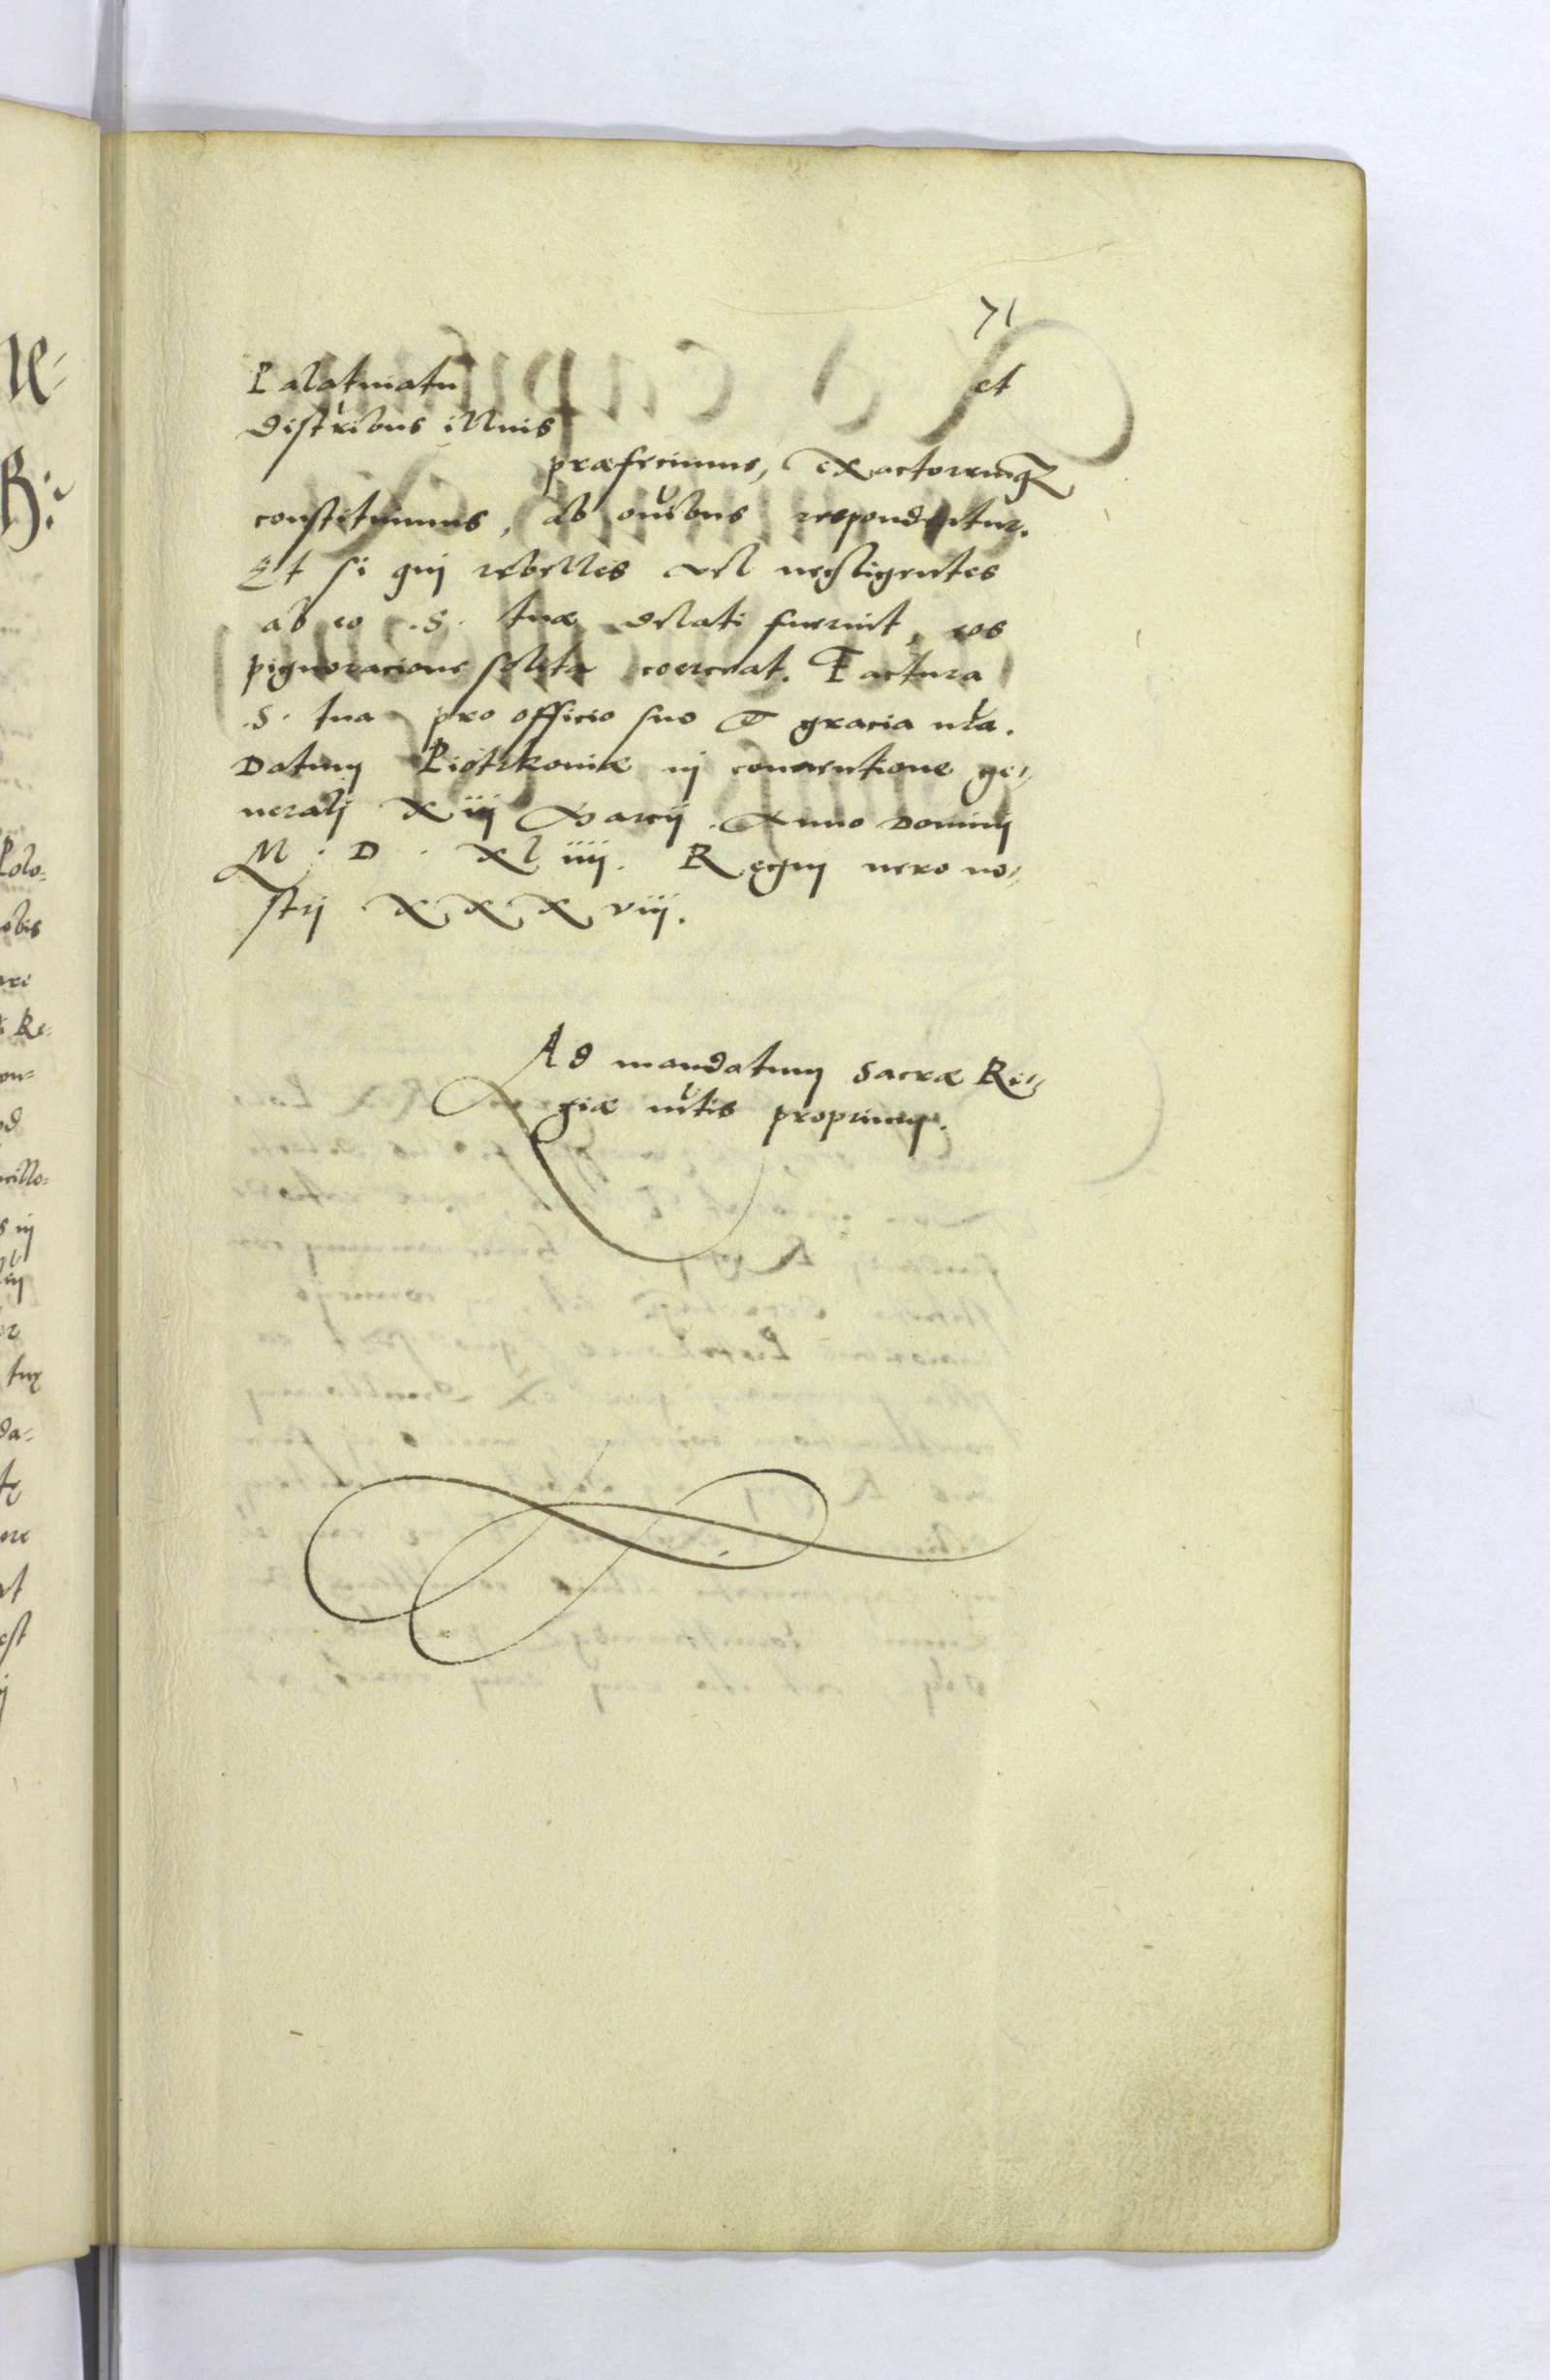 71
Palatinatu et
districtibus illius
præfecimus, exactoremqꝫ
constituimus, ab omibus respondeatur.
Et si qui rebelles vel negligentes
ab eo .S. tuæ delati fuerint, eos
pignoracione solita coerceat. Factura
.S. tua pro officio suo et gracia nra.
Datum Piotrkoviæ in conventione ge⸗
nerali xiij Marcij. Anno Domini
M. D. xl iiij. Regni vero no⸗
stri xxxviij.
Ad mandatum Sacræ Re⸗
giæ mtis proprium.